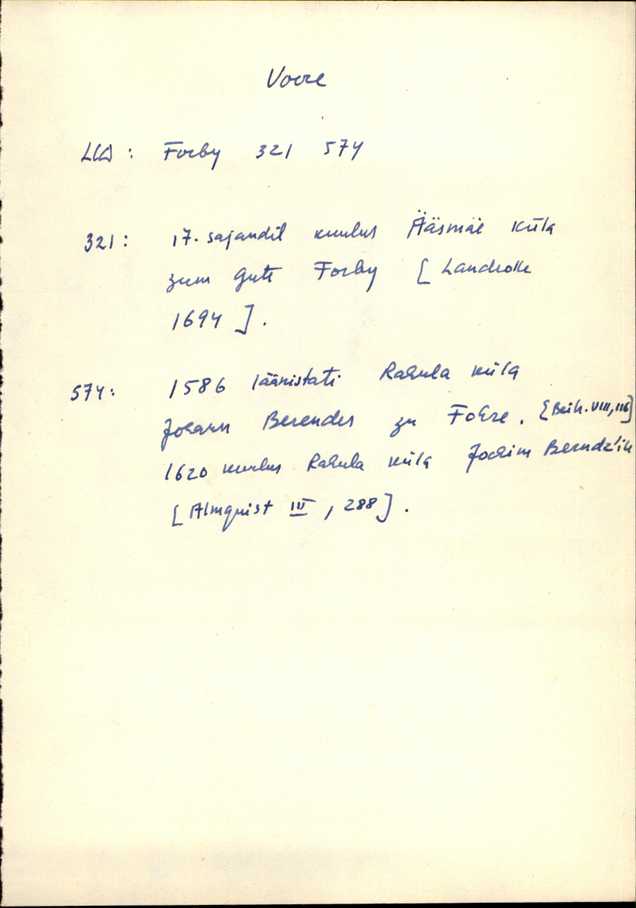 Voore
LCD: Forby 321 574
321: 17. sajandil kuulus Ääsmäe küla
zum Gute Forby [Landrolle
1694].
574: 1586 läänistati Rahula küla
Johann Berendes zu Fohre. [Brih. VIII, 116]
1620 kuulus Rahula küla Jochim Berndz'ile
[Almquist III, 288].